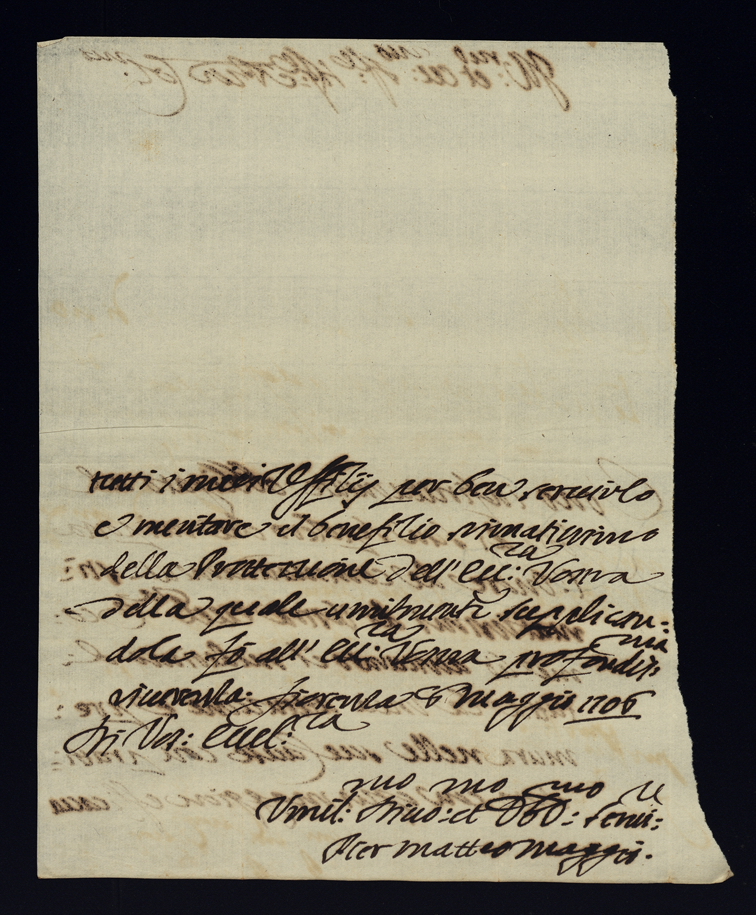 tutti i miei Offitij per ben servirlo
e meritare il benefitio stimatissimo
della Protettione dell' Ecc:za Vostra
della quale umilmente supplican:
dola fò all' Ecc:za Vostra profondis:ma
riverenza. Fiorenza 6 Maggio 1706
Di Vos: Eccel:za
Umil:mo Divo:mo et Obb:mo Servi:re
Pier Matteo Maggi.